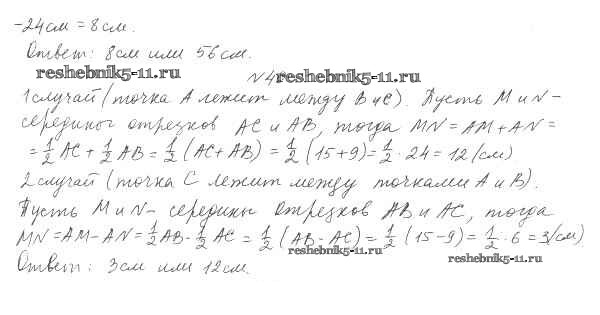 -24см = 8см.
Ответ: 8см или 56см.
reshebnik5-11.ru
reshebnik5-11.ru
1 случай (точка А лежит между В и С). Пусть M и N-
середины отрезков AC и AB, тогда MN = AM + AN =
= 1/2 AC + 1/2 AB = 1/2 (AC + AB) = 1/2 (15 + 9) = 1/2 · 24 = 12 (см)
2 случай (точка С лежит между точками А и В).
Пусть M и N - середины отрезков AB и AC, тогда
MN = AM - AN = 1/2 AB - 1/2 AC = 1/2 (AB - AC) = 1/2 (15 - 9) = 1/2 · 6 = 3 (см)
reshebnik5-11.ru
reshebnik5-11.ru
Ответ: 3см или 12см.